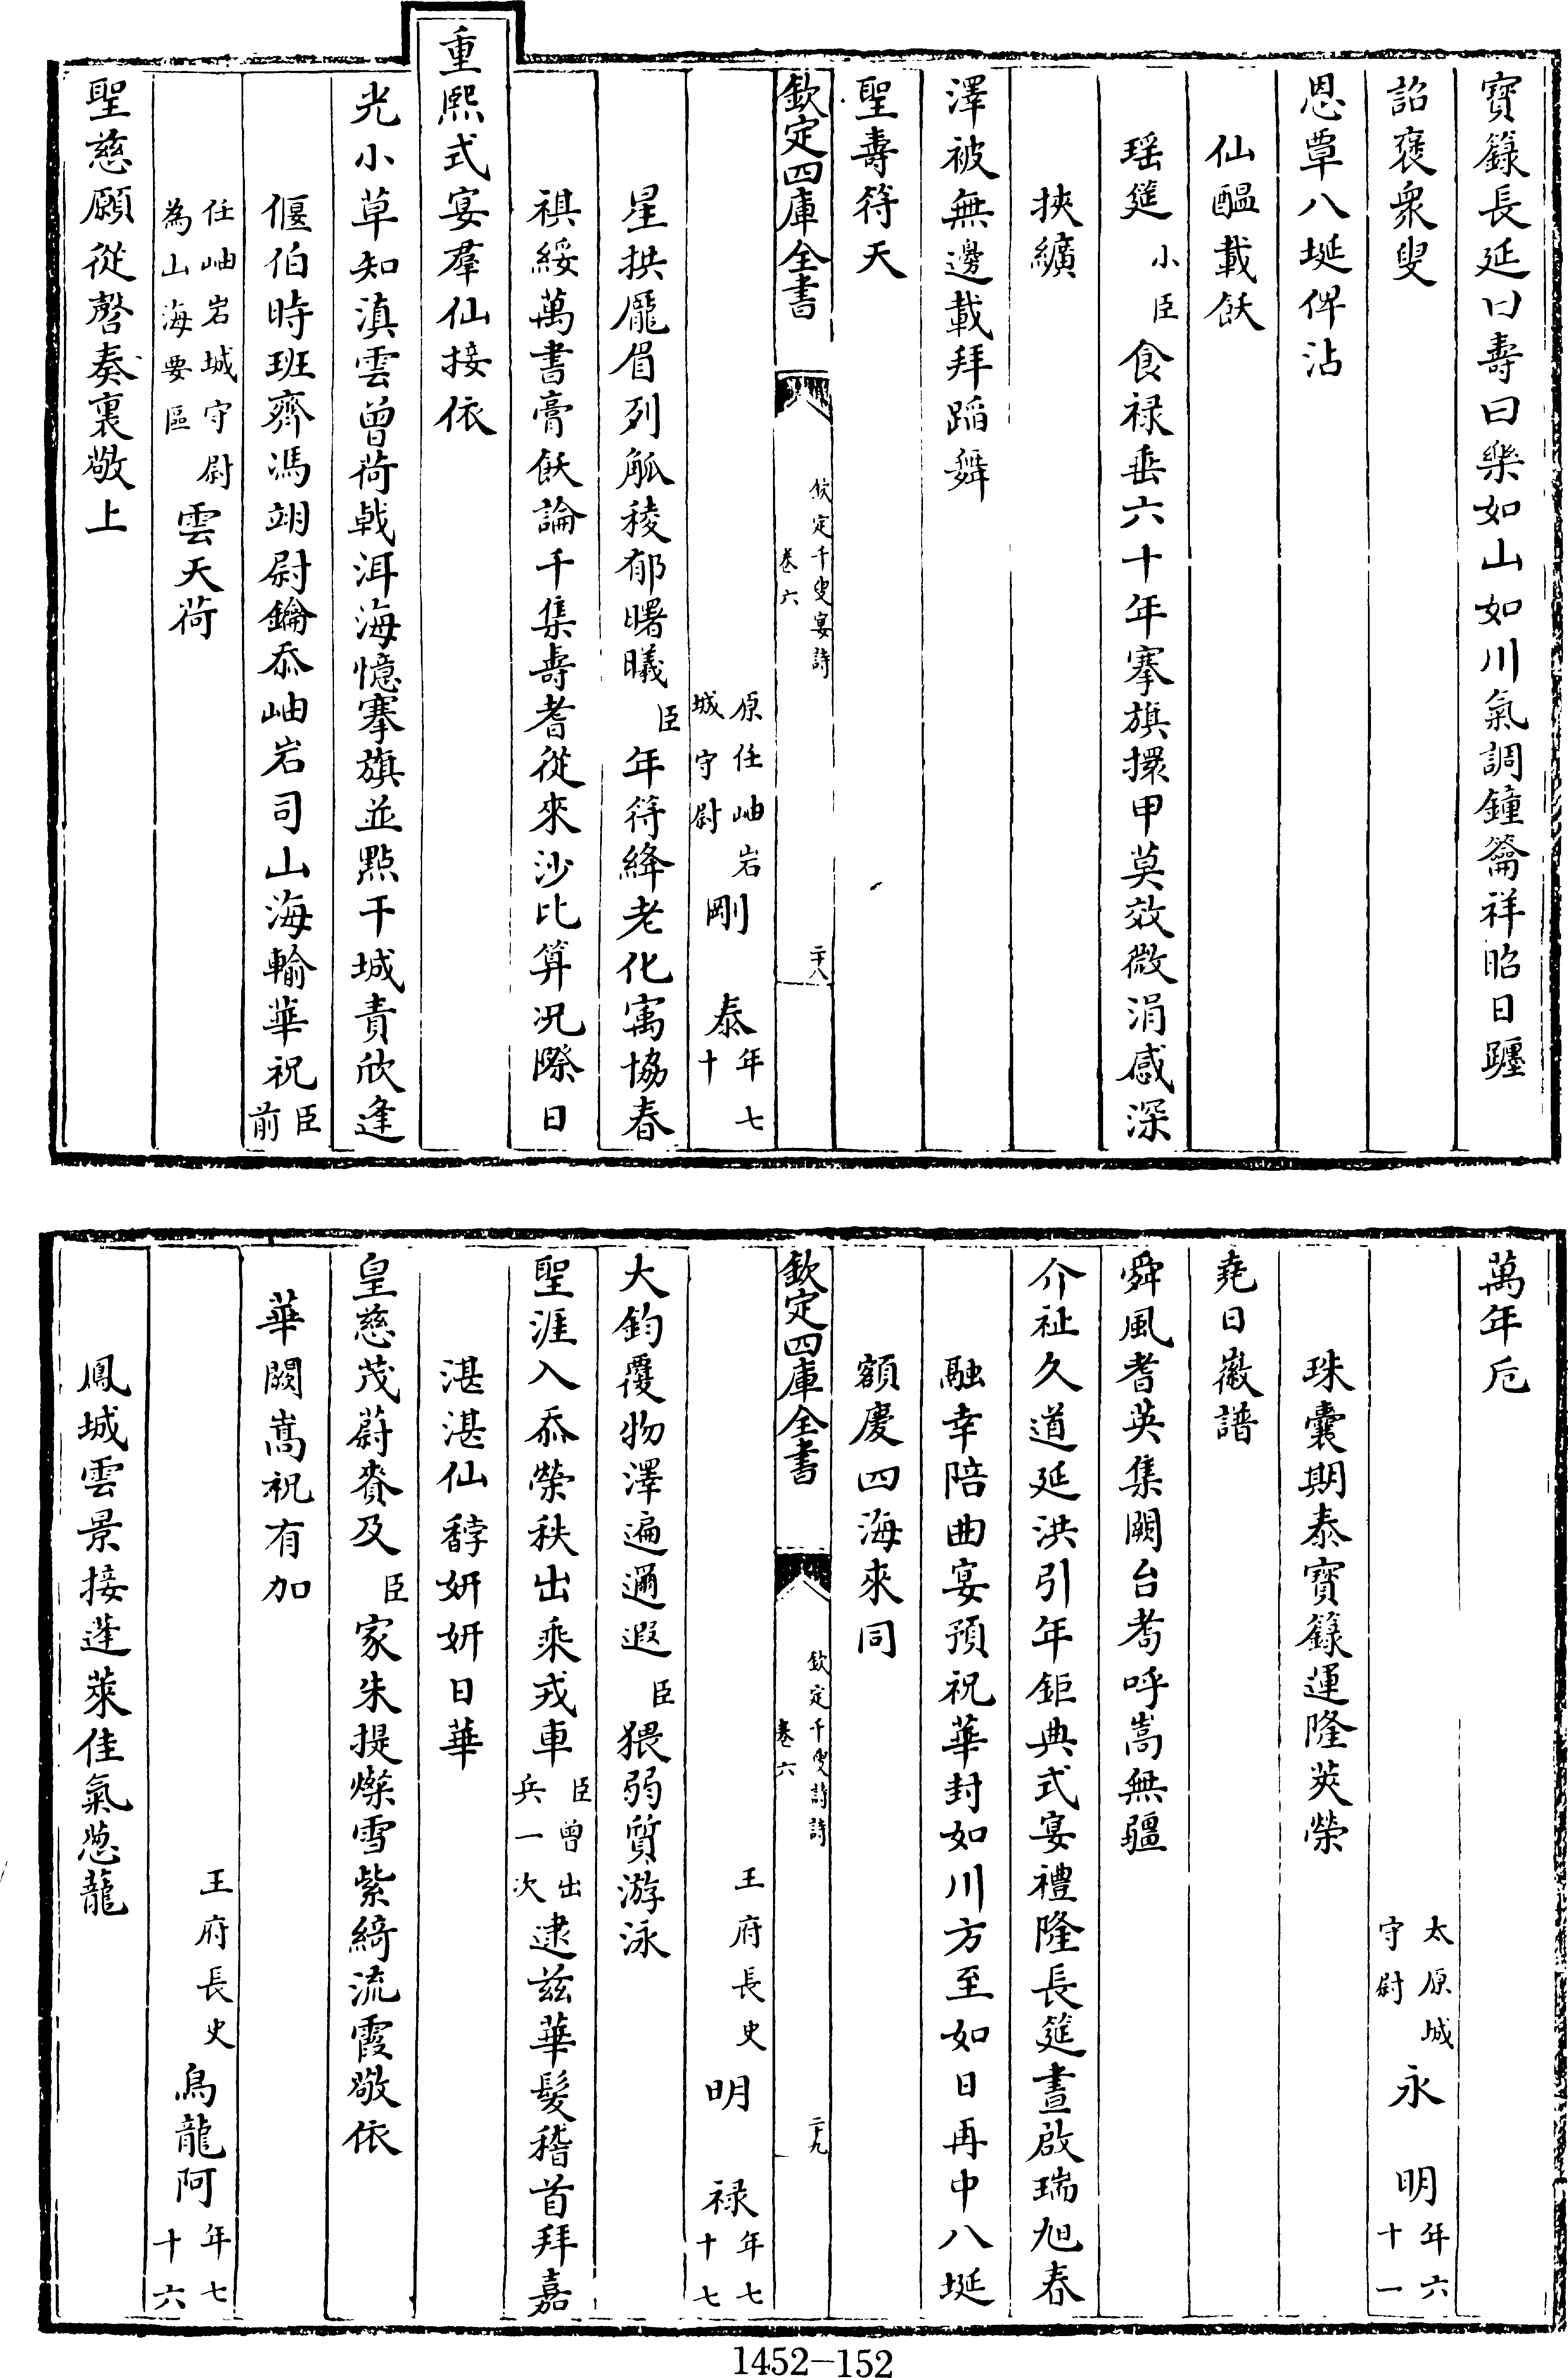 寶籙長延曰壽曰樂如山如川氣調鐘籥祥昭日躔
詔褒衆叟
恩覃八埏俾沾
仙醖載飫
瑶筵小臣食禄垂六十年搴旗擐甲莫效微涓感深
挾纊
澤被無邊載拜蹈舞
聖壽符天
欽定四庫全書
欽定千叟宴詩
卷六
二十八
原任岫岩
城守尉
剛泰
年七
十
星拱龎眉列觚稜郁曙曦臣年符絳老化寓協春
祺綏萬書膏飫論千集壽耆從來沙比算况際日
重熙式宴羣仙接依
光小草知滇雲曾荷戟洱海憶搴旗並㸃干城責欣逢
偃伯時班齊馮翊尉鑰忝岫岩司山海輸華祝臣前
任岫岩城守尉
為山海要區
雲天荷
聖慈願從磬奏裏敬上
萬年卮
太原城
守尉
永明
年六
十一
珠囊期泰寳籙運隆莢榮
堯日徽譜
舜風耆英集闕台耇呼嵩無疆
介祉久道延洪引年鉅典式宴禮隆長筵晝啟瑞旭春
融幸陪曲宴預祝華封如川方至如日再中八埏
額慶四海來同
欽定四庫全書
欽定千叟詩詩
卷六
二十九
王府長史
明禄
年七
十七
大鈞覆物澤遍邇遐臣猥弱質游泳
聖涯入忝榮秩出乘戎車臣曾出
兵一次
逮兹華髮稽首拜嘉
湛湛仙馞妍妍日華
皇慈茂蔚賚及臣家朱提燦雪紫綺流霞敬依
華闕嵩祝有加
王府長史
烏龍阿
年七
十六
鳳城雲景接蓬萊佳氣葱蘢
1452-152